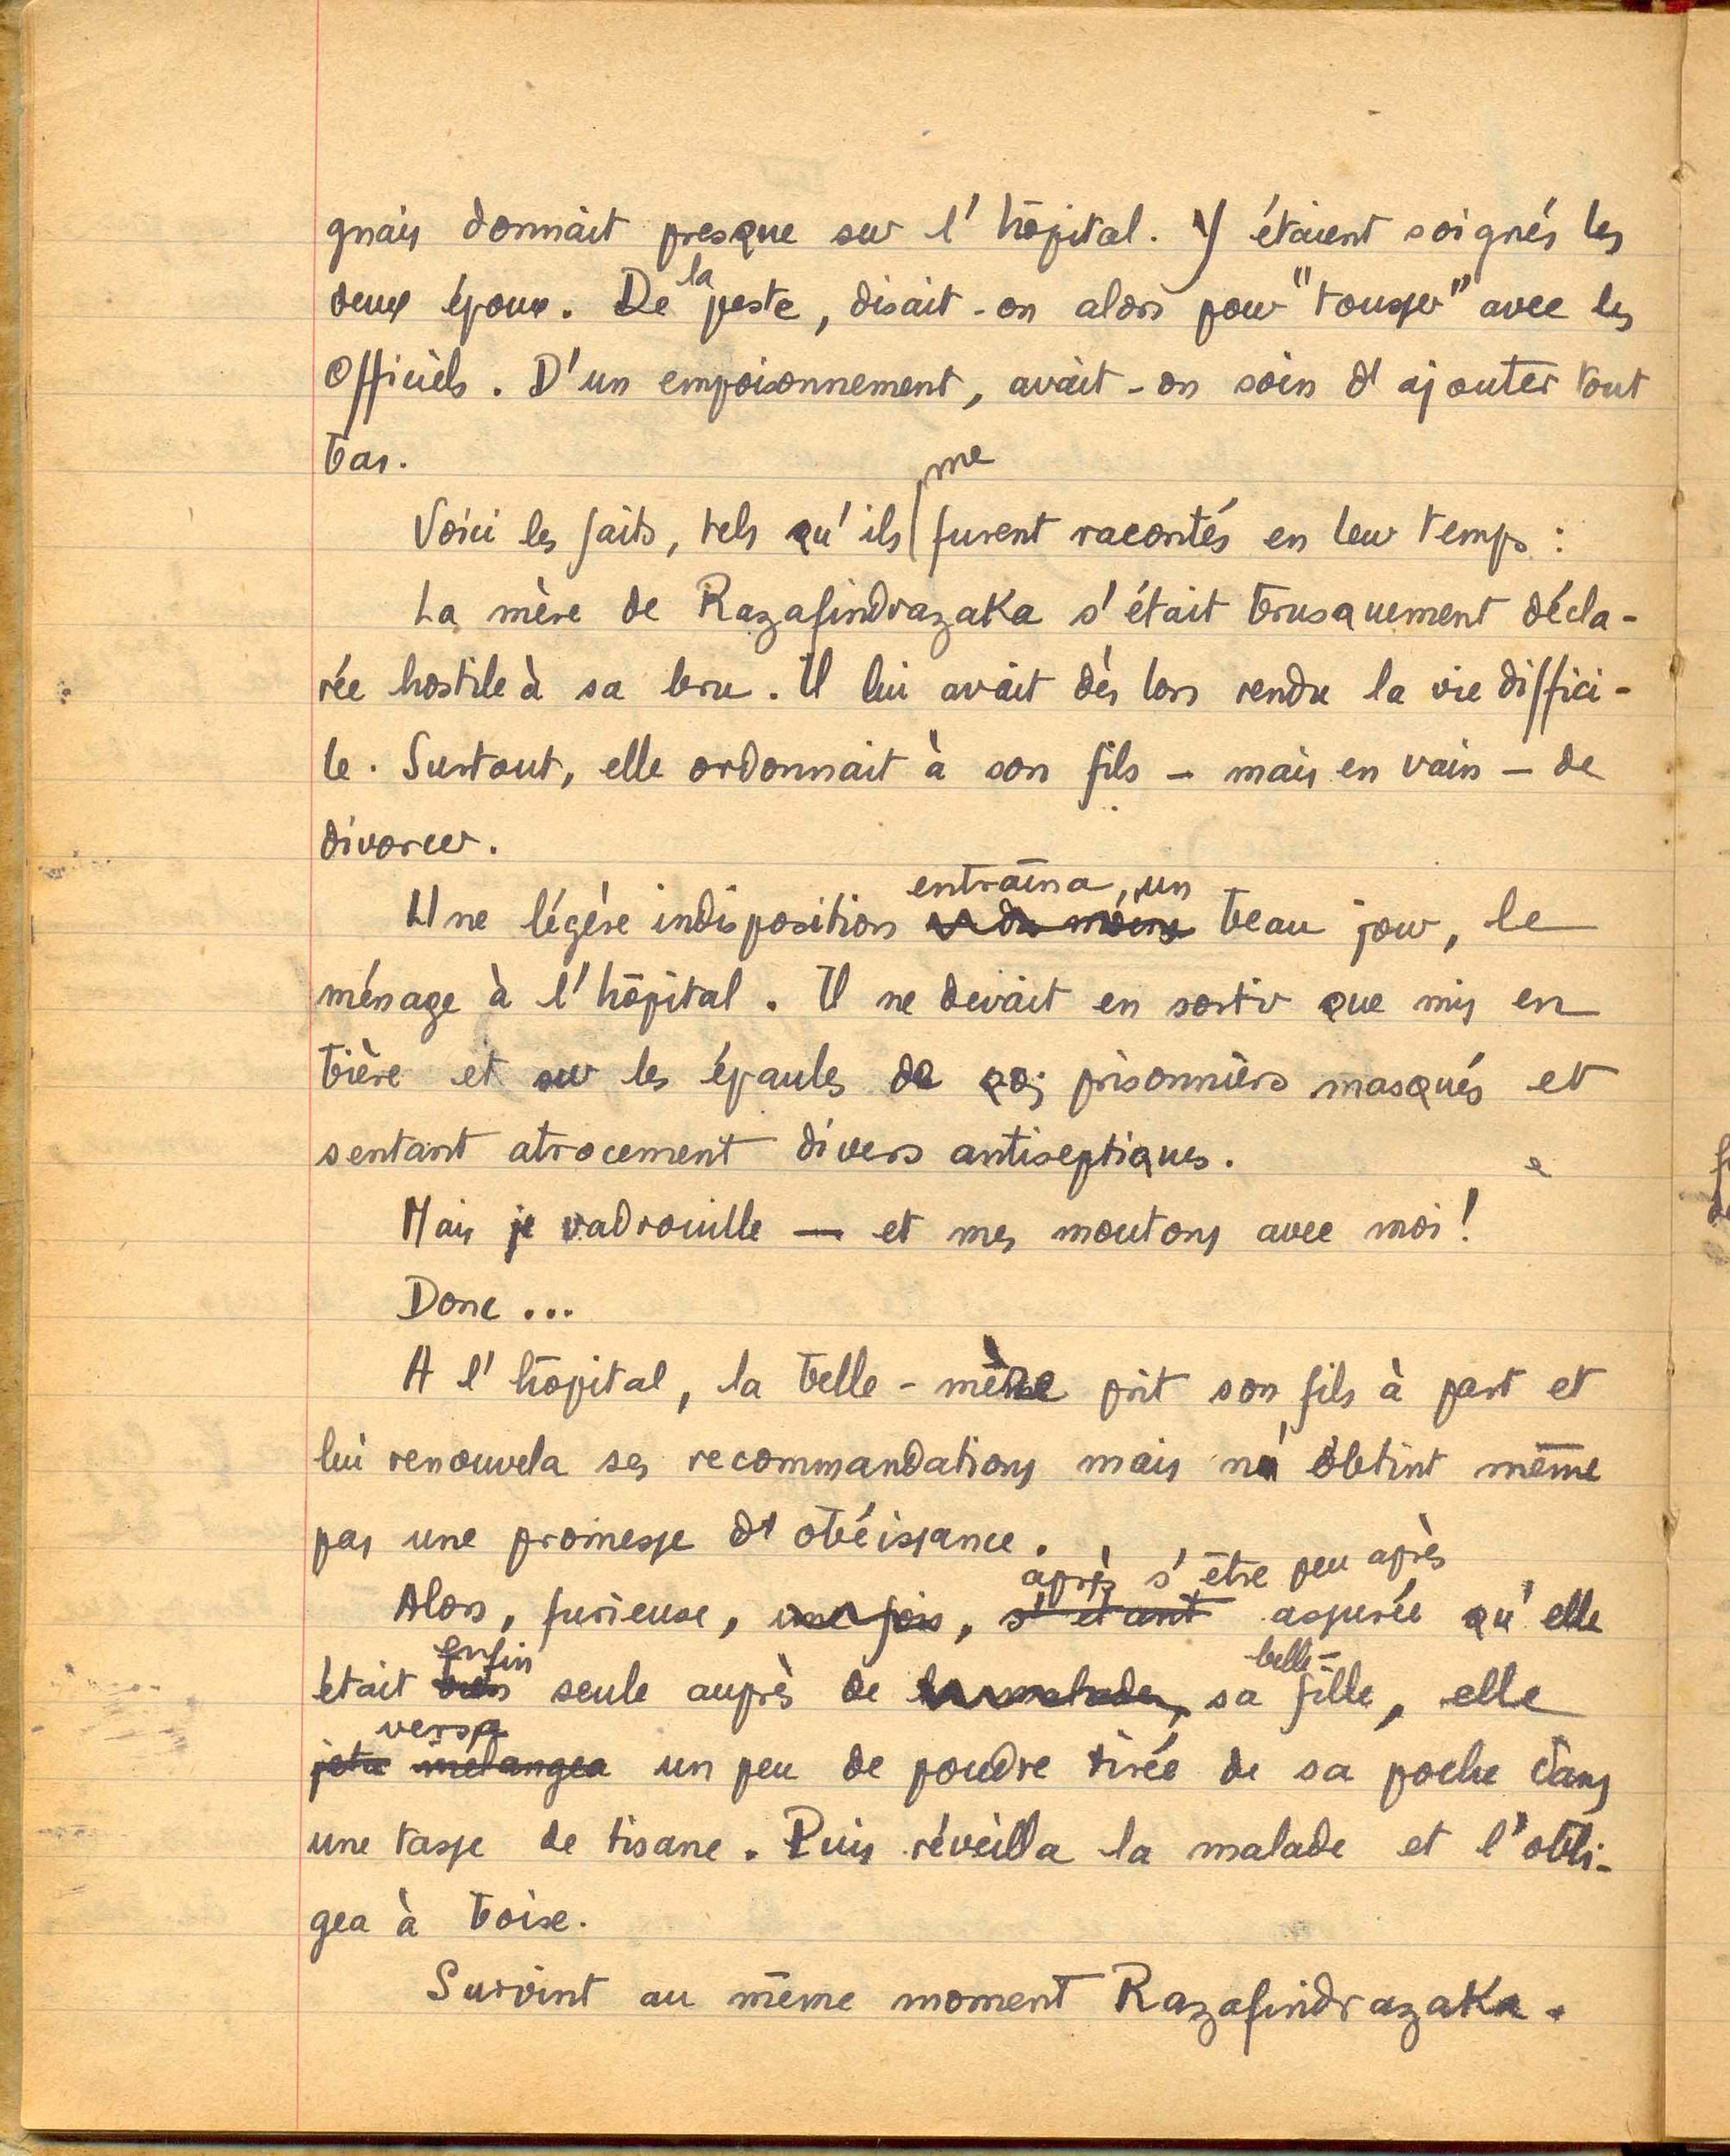 gnais donnait presque sur l'hôpital. Y étaient soignés les
deux époux. De la peste, disait-on alors pour "tousser" avec les
Officiels. D'un empoisonnement, avait-on soin d'ajouter tout
bas.
Voici les faits, tels qu'ils me furent racontés en leur temps :
La mère de Razafindrazaka s'était brusquement décla-
rée hostile à sa bru. Il lui avait dès lors rendu la vie diffici-
le. Surtout, elle ordonnait à son fils – mais en vain – de
divorcer.
Une légère indisposition entraîna, un beau jour, le
ménage à l'hôpital. Il ne devait en sortir que mis en
bière et sur les épaules de prisonniers masqués et
sentant atrocement divers antiseptiques.
Mais je vadrouille — et mes moutons avec moi !
Donc ...
A l'hôpital, la belle-mère prit son fils à part et
lui renouvela ses recommandations mais n'obtint même
pas une promesse d'obéissance.
Alors, furieuse, une fois, s'étant après s'être peu après assurée qu'elle
était enfin seule auprès de la malade, sa belle-fille, elle
jeta mélangea versa un peu de poudre tirée de sa poche dans
une tasse de tisane. Puis réveilla la malade et l'obli-
gea à boire.
Survint au même moment Razafindrazaka.